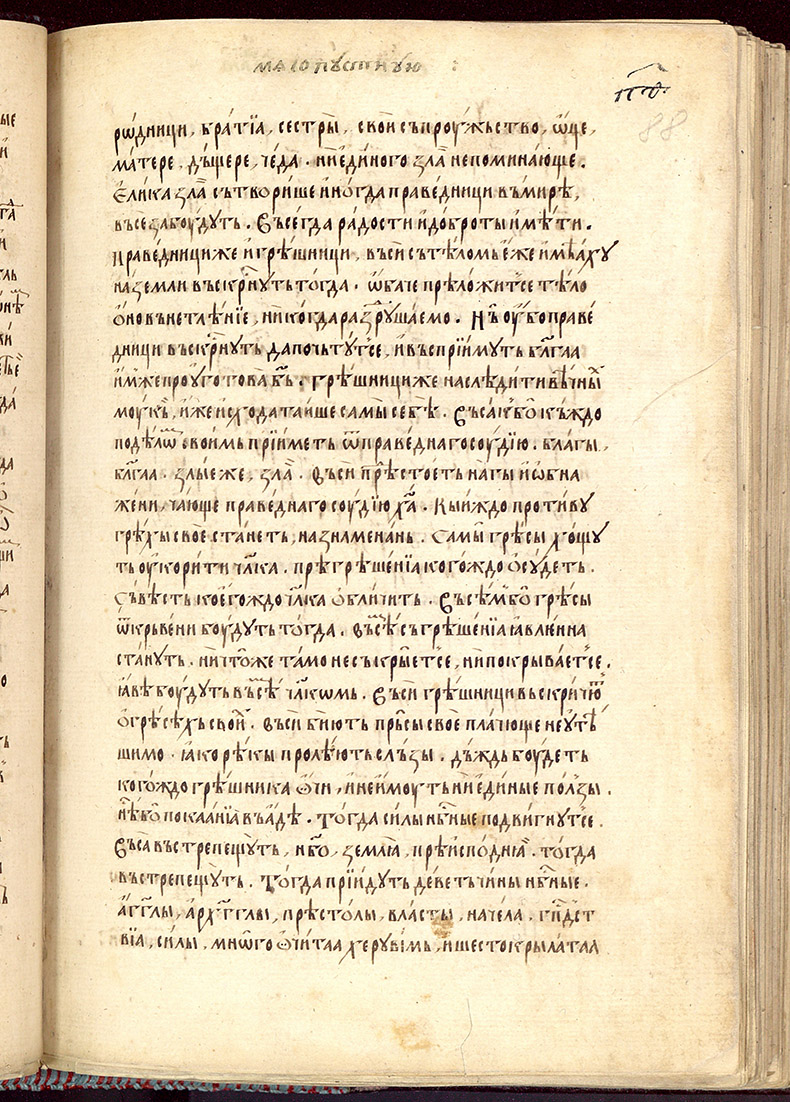 мꙗсопꙋстнꙋю :
п҃ѳ.
88
рѡ́дници, бра́тїа, сестры̀, своѝ съпроу́жьство, ѿще,
ма́тере. дъ́щере, че́да. ниеди́ного зла̀ непомина́юще.
Е҆ли́ка зла̀ сътвори́ше и҆но́гда пра́ведници въми́рѣ,
въсѐ забоу́дуть. Въсегда ра́дости и҆до́броты и҆мѣ́ти.
Пра́ведници же и҆грѣ́шници, въси съ тѣ́ломь е҆́же и҆мѣ́ахꙋ
на земли въскр҃нꙋть тогда. ѡ҆ба́че прѣложи́тсе тѣ́ло
о҆но въ нетлѣ́нїе, никогда разрꙋша́емо. Нъ̀ оу҆́бо праве́
дници въскр҃нꙋть да почьтꙋ́тсе, и҆въспрїи́мꙋть бл҃гаа
и҆́мже проу҆гото́ва б҃ь. грѣ́шници же наслѣ́дити вѣ́чнꙋ
моукꙋ, и҆́же и҆схода́таише самы̀ себѣ̀. Въса́к бо̀ къ́ждо
подѣ́лѡ свои́мь прїи́меть ѿ пра́веднаго соудїю. благы̀,
бл҃гаа. злы́е же, зла̀. въсѝ прѣ́стоеть на́гы и҆ѡ҆бна
же́ни, ча́юще пра́веднаго соудїю ха҃. Кыиждо проти́вꙋ
грѣхы̀ свое ста́неть, на зна́менань. Самы́ грѣсы хо́щꙋ
ть оу҆кори́ти чл҃ка. прѣгрѣше́нїа кого́ждо о҆сꙋ́деть.
Съ́вѣсть коего́ждо чл҃ка о҆бли́чить. Въсѣ́м бо̀ грѣсы
ѿкрьве́ни боу́дꙋть тогда. въсѣ́ съгрѣше́нїа ꙗ҆влие́нна
ста́нꙋть. ничто́же та́мо несъкры́етсе, ни покрыва́етсе.
ꙗ҆́вѣ боу́дꙋть въсѣ́ чл҃комь. Въси грѣ́шници въскричю҆т
о҆ грѣсѣ́хь свои. въси бию́ть прьсы свое пла́чюще неꙋтѣ́
шимо. ꙗ҆ко рѣ́кы пролѣ́ють слъ́зы. дъ́ждь боу́деть
кого́ждо грѣ́шника ѻ҆чи, и҆ неи́моуть ни еди́ные по́лзы.
нѣ́ бо̀ покаа́нїа въ а́дѣ. Тогда си́лы нб҃ные подви́гнꙋтсе.
Въса въстрепе́щꙋть, нб҃о, землꙗ̀, прѣи́споднꙗа. тогда
въстрепе́щꙋть. Тогда прїи́дꙋть де́веть чи́ны нб҃ные.
а҆́гг҃лы, а҆рха́гг҃лы, прѣсто́лы, вла́сты, наче́ла. гп҃дст
вїа, си́лы, мнѡ́го ѻ҆чи́таа херꙋви́мь, и҆шестокрыла́таꙗ